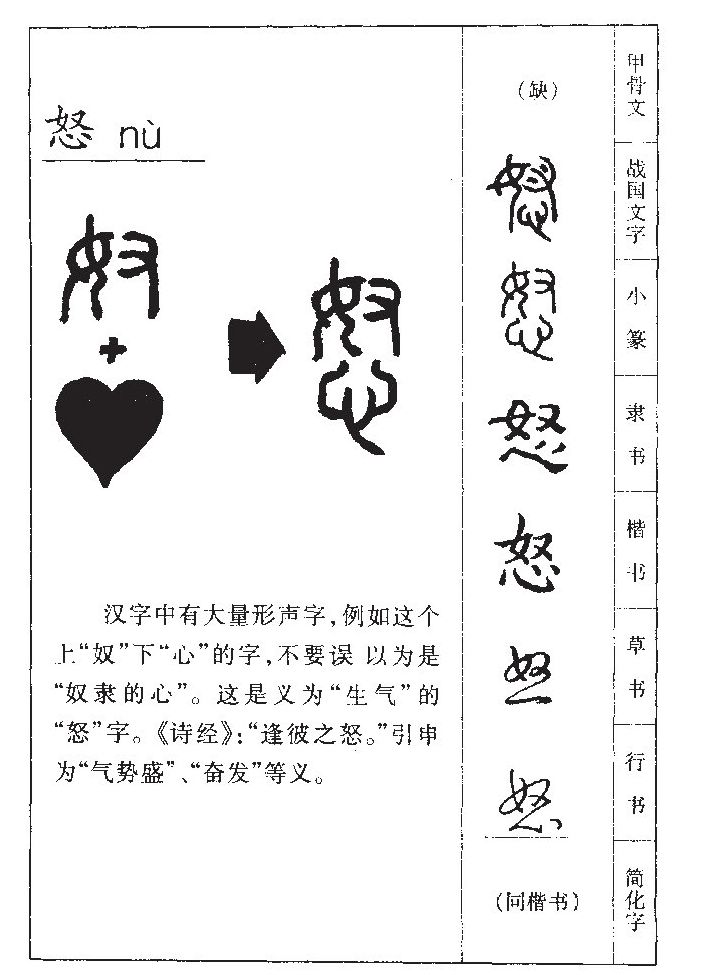 怒 nù
奴
+
怒
汉字中有大量形声字,例如这个
上“奴”下“心”的字,不要误 以为是
“奴隶的心”。这是义为“生气”的
“怒”字。《诗经》:“逢彼之怒。”引申
为“气势盛”、“奋发”等义。
(缺) 甲骨文
怒 战国文字
怒 小篆
怒 隶书
怒 楷书
怒 草书
怒 行书
(同楷书) 简化字